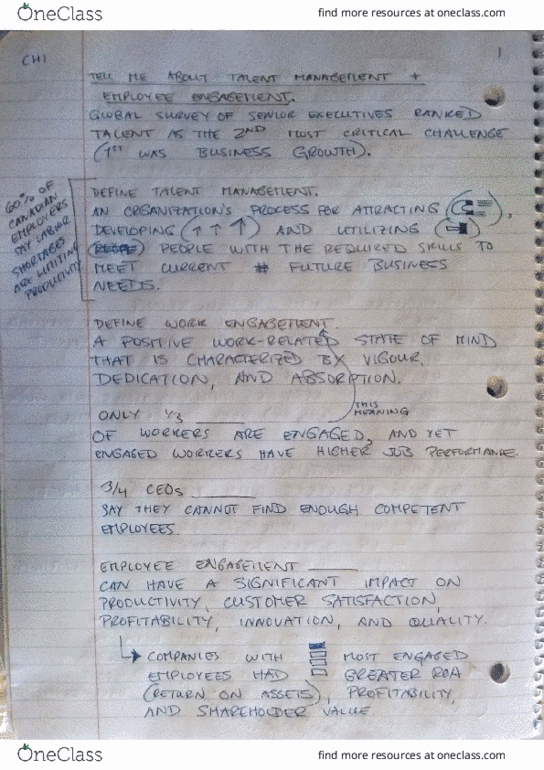 OneClass
find more resources at oneclass.com
CH1
1
TELL ME ABOUT TALENT MANAGEMENT +
EMPLOYEE ENGAGEMENT.
GLOBAL SURVEY OF SENIOR EXECUTIVES RANKED
TALENT AS THE 2ND MOST CRITICAL CHALLENGE
(1ST WAS BUSINESS GROWTH).
60% OF
CANADIAN
EMPLOYERS
SAY LABOR
SHORTAGES
ARE LIMITING
PRODUCTIVITY
DEFINE TALENT MANAGEMENT.
AN ORGANIZATION'S PROCESS FOR ATTRACTING ( ),
DEVELOPING (↑ ↑ ↑) AND UTILIZING ( )
PEOPLE WITH THE REQUIRED SKILLS TO
MEET CURRENT # FUTURE BUSINESS
NEEDS.
DEFINE WORK ENGAGEMENT.
A POSITIVE WORK-RELATED STATE OF MIND
THAT IS CHARACTERIZED BY VIGOUR,
DEDICATION, AND ABSORPTION.
THIS
MEANING
ONLY 1/3 ______
OF WORKERS ARE ENGAGED, AND YET
ENGAGED WORKERS HAVE HIGHER JOB PERFORMANCE.
3/4 CEOs ______
SAY THEY CANNOT FIND ENOUGH COMPETENT
EMPLOYEES.
EMPLOYEE ENGAGEMENT ______
CAN HAVE A SIGNIFICANT IMPACT ON
PRODUCTIVITY, CUSTOMER SATISFACTION,
PROFITABILITY, INNOVATION, AND QUALITY.
↳ COMPANIES WITH MOST ENGAGED
EMPLOYEES HAD GREATER ROA
(RETURN ON ASSETS), PROFITABILITY,
AND SHAREHOLDER VALUE.
OneClass
find more resources at oneclass.com